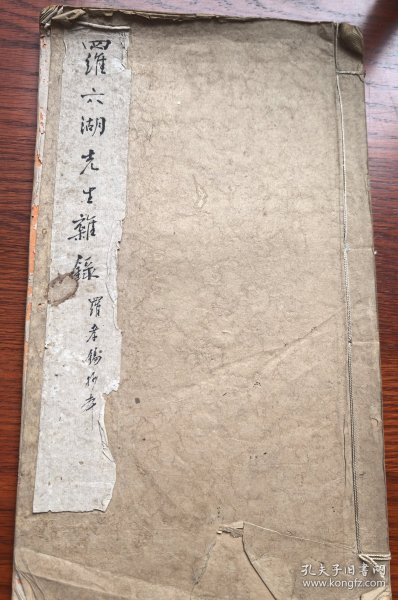 羅六湖先生雜錄
羅孝
孔夫子旧书网
www.kongfz.com